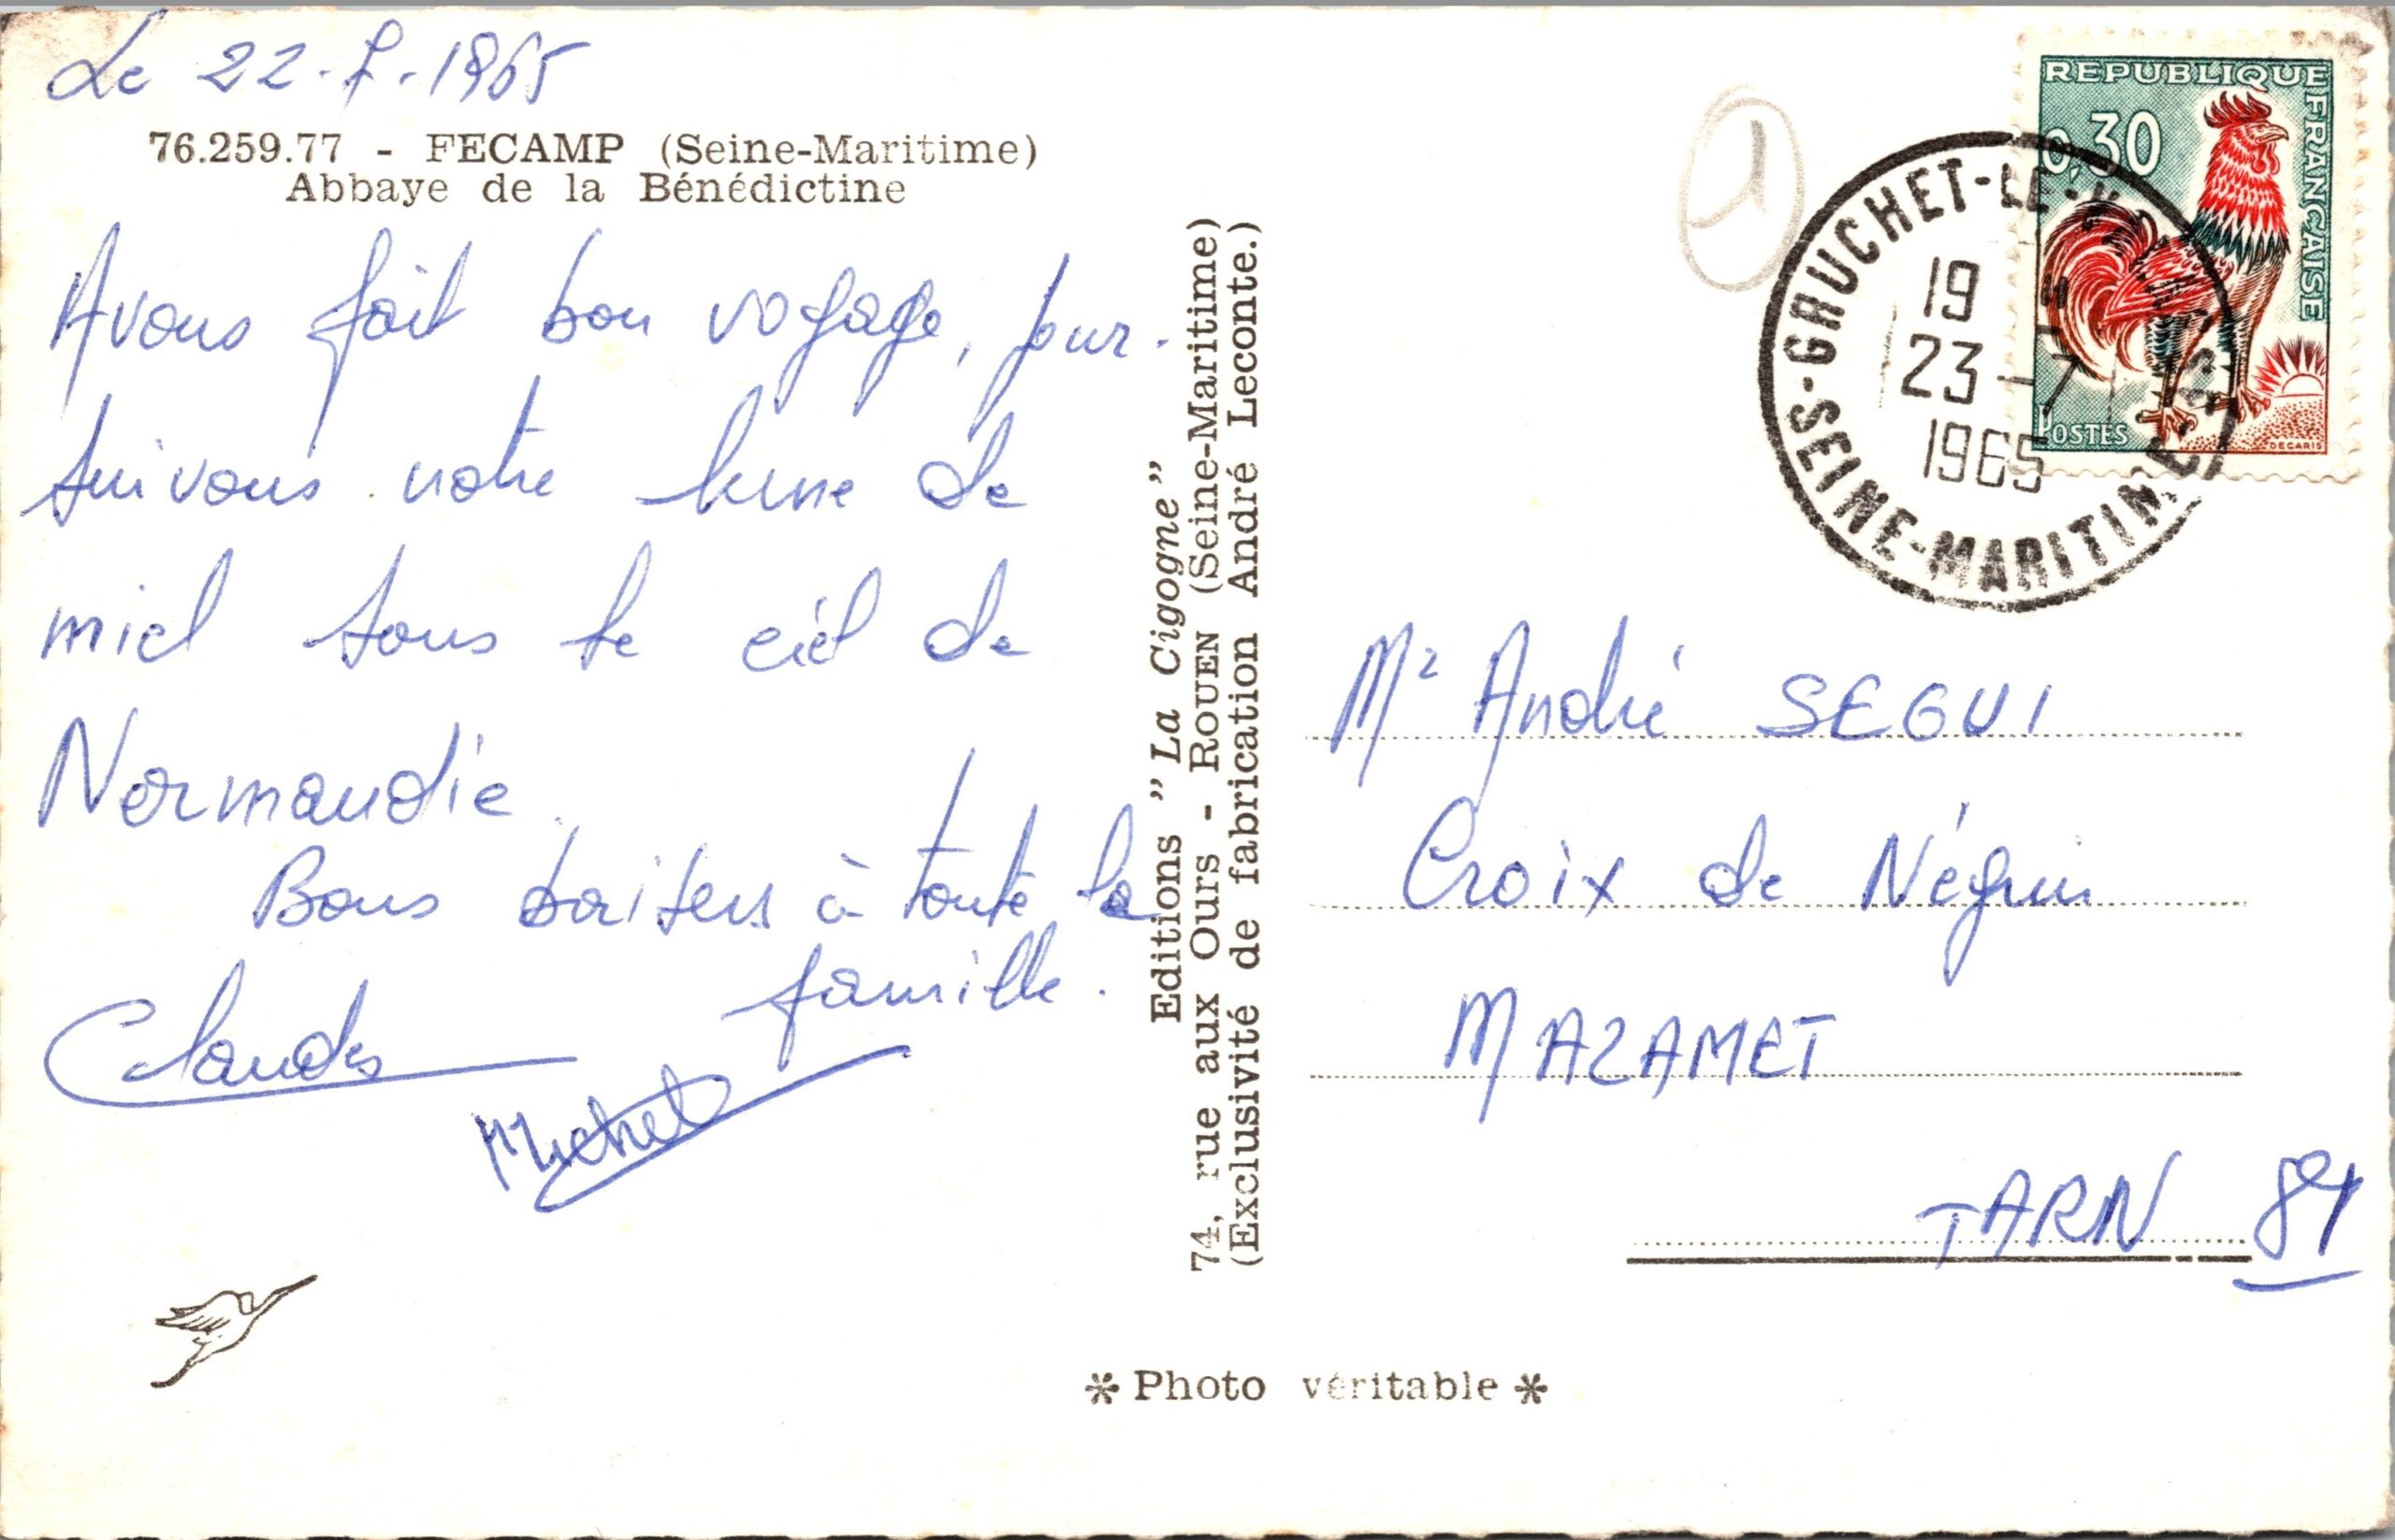 Le 22-7-1965
76.259.77 - FECAMP (Seine-Maritime)
Abbaye de la Bénédictine
Avons fait bon voyage, pour-
suivons notre lune de
miel sous le ciel de
Normandie.
Bons baisers à toute la
famille.
Claude
Michel
Editions "La Cigogne"
74, rue aux Ours - ROUEN (Seine-Maritime)
(Exclusivité de fabrication André Leconte.)
1
REPUBLIQUE FRANÇAISE
0,30
POSTES
DECARIS
GRUCHET-LE-
19 H
23-7
1965
SEINE-MARITIME
Mr André SEGUI
Croix de Négrin
MAZAMET
TARN 81
* Photo véritable *